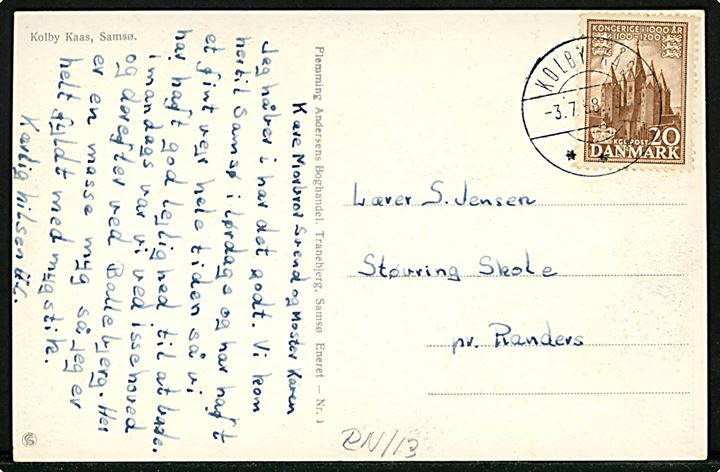 Kolby Kaas, Samsø.
Kære Morbror Svend og Moster Karen
Jeg håber i har det godt. Vi kom
hertil Samsø i lørdags og har haft
et fint vejr hele tiden så vi
har haft god lejlighed til at bade.
i mandags var vi ved issehoved
og derefter ved Ballebjerg. Her
er en masse myg så jeg er
helt fyldt med mygstik.
Kærlig hilsen
Flemming Andersens Boghandel, Tranebjerg, Samsø Eneret — Nr. 1
KONGERIGE I 1000 ÅR
1100-1200
KGL POST
20
DANMARK
KOLBY KÅS
-3.7.58
Lærer S. Jensen
Støvring Skole
pr. Randers
RN/13